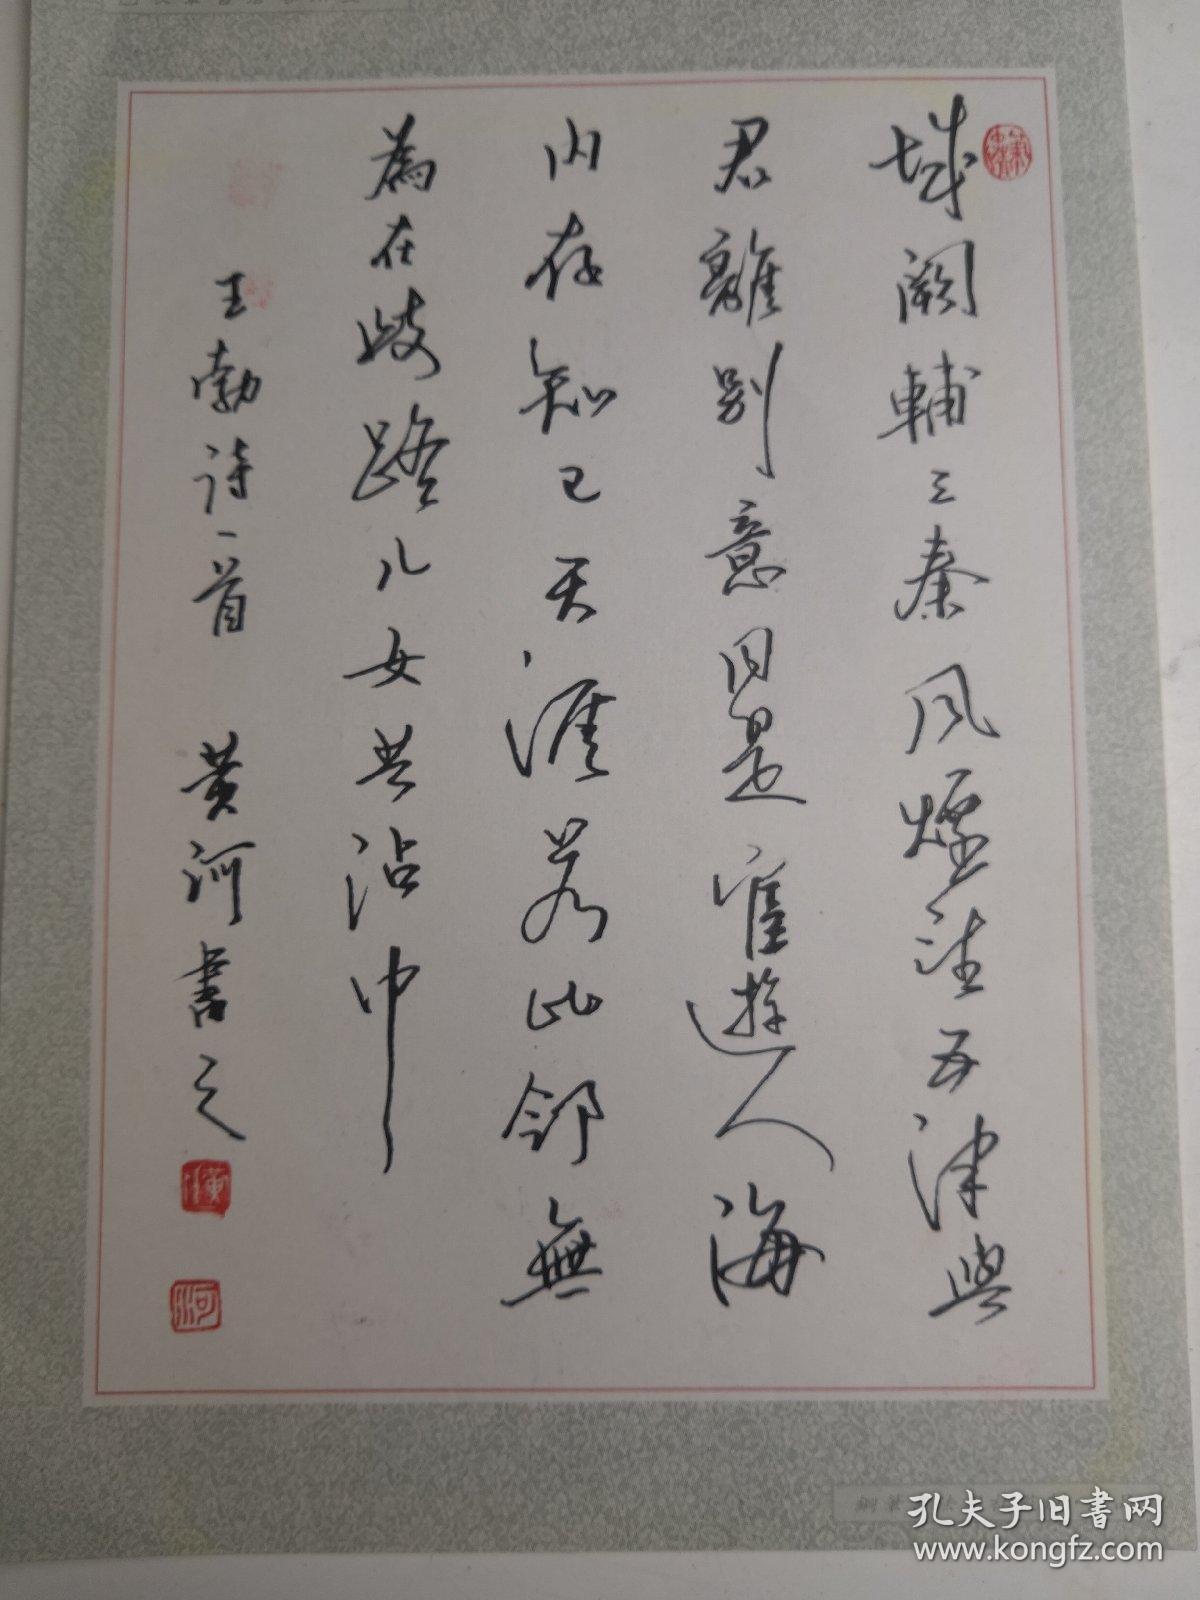 城闕輔三秦風煙望五津與
君離别意同是宦遊人海
內存知己天涯若比鄰無
為在歧路儿女共沾巾
王勃诗一首 黄河書之
河
孔夫子旧书网
www.kongfz.com